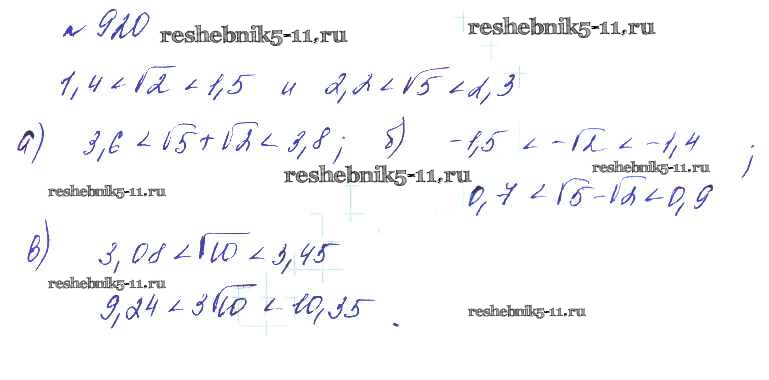 № 920 reshebnik5-11.ru reshebnik5-11.ru
1,4 < √2 < 1,5 и 2,2 < √5 < 2,3
а) 3,6 < √5 + √2 < 3,8; б) -1,5 < -√2 < -1,4
reshebnik5-11.ru reshebnik5-11.ru reshebnik5-11.ru
0,7 < √5 - √2 < 0,9;
в) 3,08 < √10 < 3,45
reshebnik5-11.ru
9,24 < 3√10 < 10,35. reshebnik5-11.ru